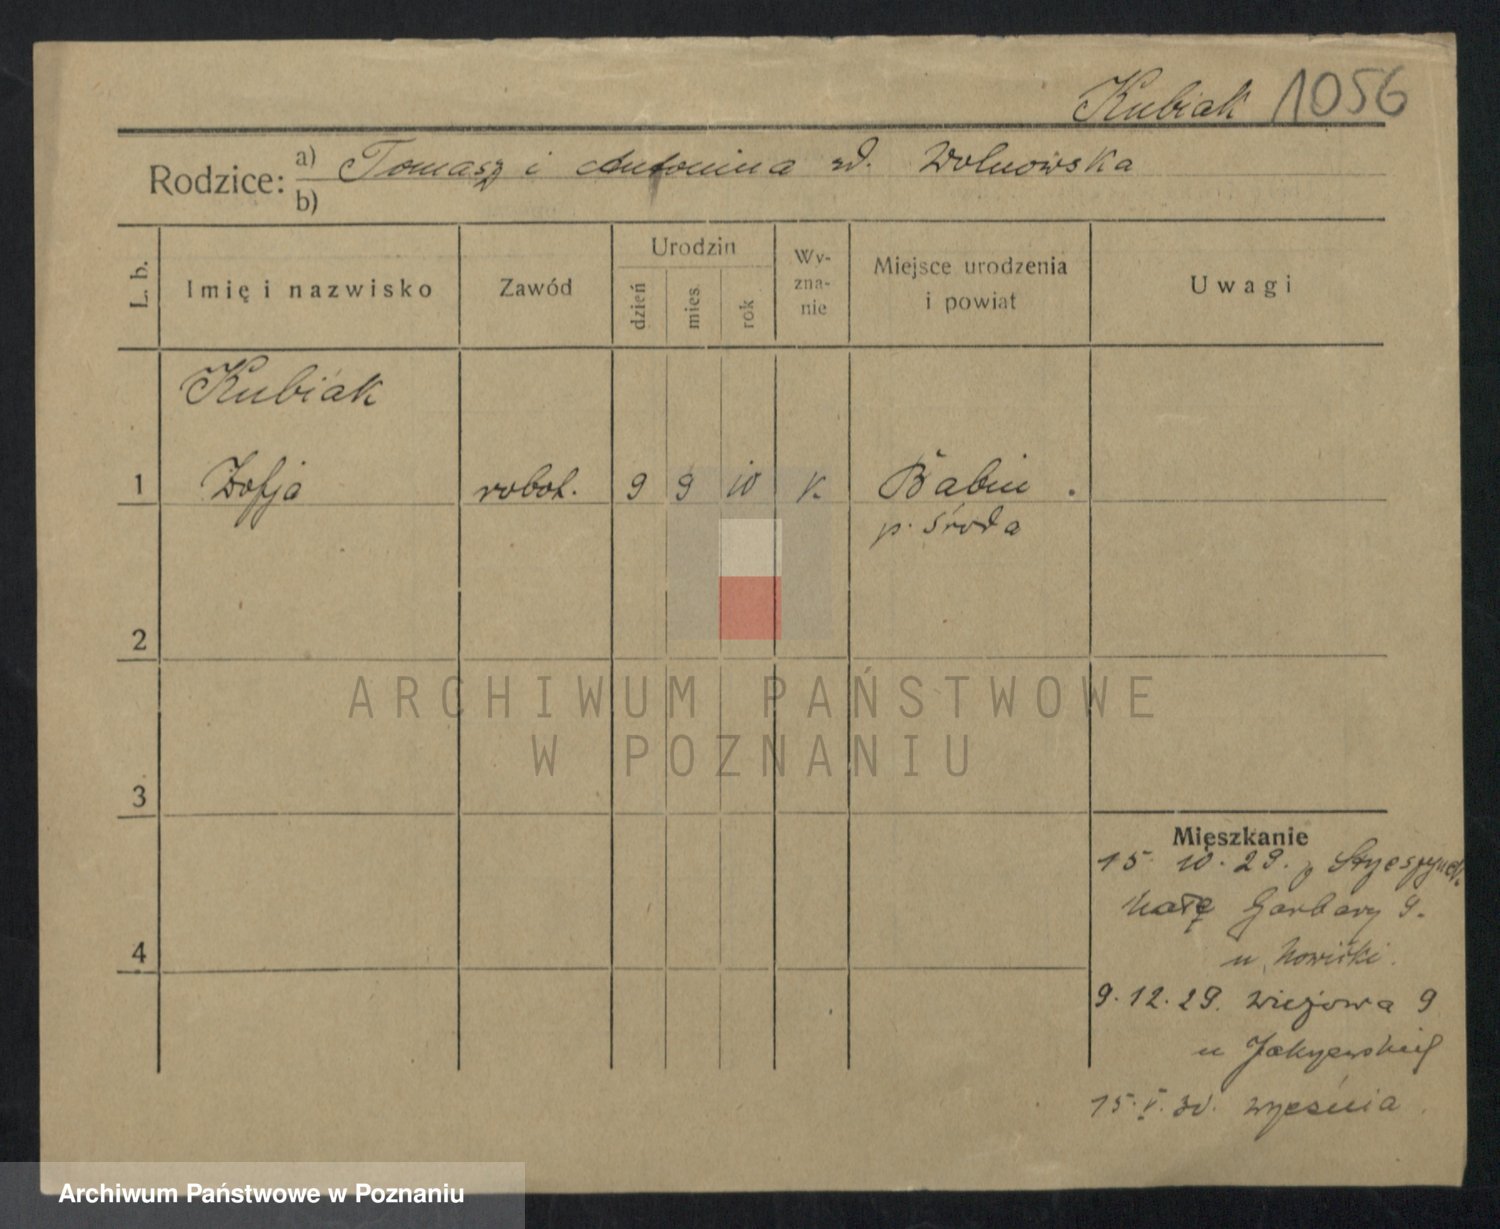 Kubiak 1056
Rodzice: a) Tomasz i Antonina zd. Wolnowska
b)
L. b.
Imię i nazwisko
Zawód
Urodzin
dzień
mies.
rok
Wy-
zna-
nie
Miejsce urodzenia
i powiat
Uwagi
Kubiak
1 Zofja robot. 9 9 10 k. Babin.
p. Środa
2
3
4
ARCHIWUM PAŃSTWOWE
W POZNANIU
Mieszkanie
15. 10. 29. z
Małe Garbary 9.
u Nowicki.
9. 12. 29. 9
u
15. V. 30.
Archiwum Państwowe w Poznaniu